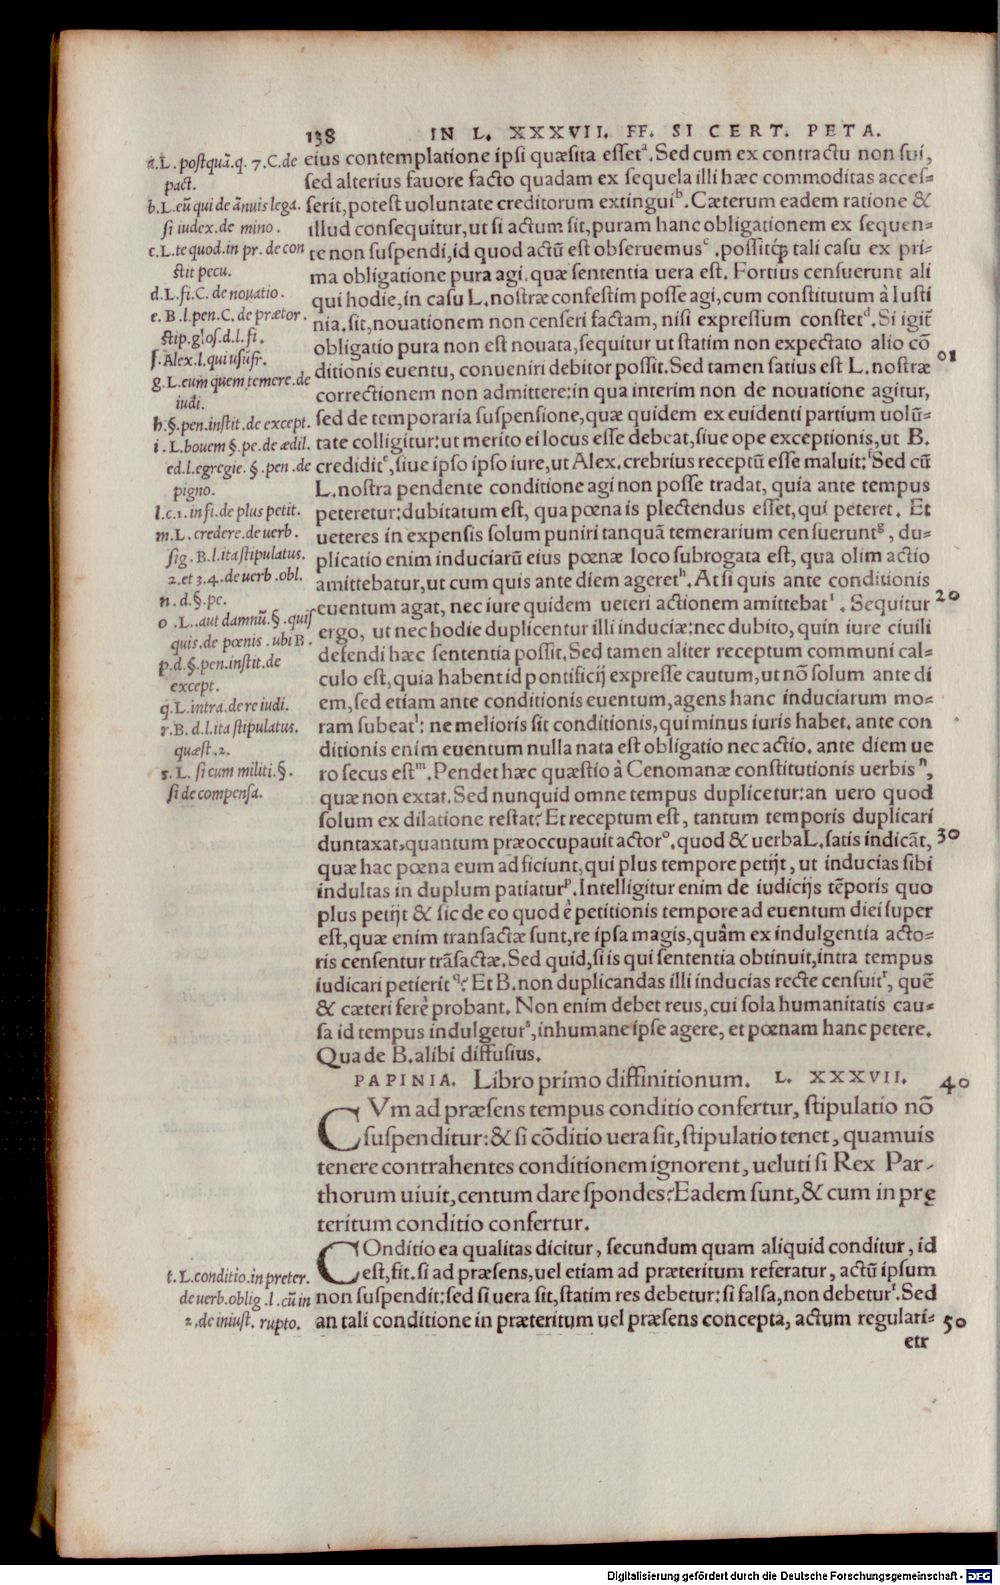 138 IN L. XXXVII. FF. SI CERT. PETA.
eius contemplatione ipsi quæsita esset<sup>a</sup>. Sed cum ex contractu non sui,
sed alterius fauore facto quadam ex sequela illi hæc commoditas acces=
serit, potest uoluntate creditorum extingui<sup>b</sup>. Cæterum eadem ratione &
illud consequitur, ut si actum sit, puram hanc obligationem ex sequen=
te non suspendi, id quod actũ est obseruemus<sup>c</sup>. possitq́ꝫ tali casu ex pri=
ma obligatione pura agi. quæ sententia uera est. Fortius censuerunt ali
qui hodie, in casu L. nostræ confestim posse agi, cum constitutum à Iusti
nia. sit, nouationem non censeri factam, nisi expressum constet<sup>d</sup>. Si igit̃
obligatio pura non est nouata, sequitur ut statim non expectato alio cõ
ditionis euentu, conueniri debitor possit. Sed tamen satius est L. nostræ
01
correctionem non admittere: in qua interim non de nouatione agitur,
sed de temporaria suspensione, quæ quidem ex euidenti partium uolũ=
tate colligitur: ut merito ei locus esse debeat, siue ope exceptionis, ut B.
credidit<sup>e</sup>, siue ipso ipso iure, ut Alex. crebrius receptũ esse maluit:<sup>f</sup> Sed cũ
L. nostra pendente conditione agi non posse tradat, quia ante tempus
peteretur: dubitatum est, qua pœna is plectendus esset, qui peteret. Et
ueteres in expensis solum puniri tanquã temerarium censuerunt<sup>g</sup>, du=
plicatio enim induciarũ eius pœnæ loco subrogata est, qua olim actio
amittebatur, ut cum quis ante diem ageret<sup>h</sup>. At si quis ante conditionis
euentum agat, nec iure quidem ueteri actionem amittebat<sup>i</sup>. Sequitur
20
ergo, ut nec hodie duplicentur illi induciæ: nec dubito, quin iure ciuili
defendi hæc sententia possit. Sed tamen aliter receptum communi cal=
culo est, quia habent id pontificij expresse cautum, ut nõ solum ante di
em, sed etiam ante conditionis euentum, agens hanc induciarum mo=
ram subeat<sup>l</sup>: ne melioris sit conditionis, qui minus iuris habet. ante con
ditionis enim euentum nulla nata est obligatio nec actio. ante diem ue
ro secus est<sup>m</sup>. Pendet hæc quæstio à Cenomanæ constitutionis uerbis<sup>n</sup>,
quæ non extat. Sed nunquid omne tempus duplicetur: an uero quod
solum ex dilatione restat? Et receptum est, tantum temporis duplicari
duntaxat, quantum præoccupauit actor<sup>o</sup>. quod & uerba L. satis indicãt,
30
quæ hac pœna eum adficiunt, qui plus tempore petijt, ut inducias sibi
indultas in duplum patiatur<sup>p</sup>. Intelligitur enim de iudicijs tẽporis quo
plus petijt & sic de eo quod è petitionis tempore ad euentum diei super
est, quæ enim transactæ sunt, re ipsa magis, quàm ex indulgentia acto=
ris censentur trãsactæ. Sed quid, si is qui sententia obtinuit, intra tempus
iudicari petierit<sup>q</sup>? Et B. non duplicandas illi inducias recte censuit<sup>r</sup>, quẽ
& cæteri ferè probant. Non enim debet reus, cui sola humanitatis cau=
sa id tempus indulgetur<sup>s</sup>, inhumane ipse agere, et pœnam hanc petere.
Qua de B. alibi diffusius.
PAPINIA. Libro primo diffinitionum. L. XXXVII.
40
CVm ad præsens tempus conditio confertur, stipulatio nõ
suspenditur: & si cõditio uera sit, stipulatio tenet, quamuis
tenere contrahentes conditionem ignorent, ueluti si Rex Par-
thorum uiuit, centum dare spondes? Eadem sunt, & cum in prę
teritum conditio confertur.
COnditio ea qualitas dicitur, secundum quam aliquid conditur, id
est, fit. si ad præsens, uel etiam ad præteritum referatur, actũ ipsum
non suspendit: sed si uera sit, statim res debetur: si falsa, non debetur<sup>t</sup>. Sed
an tali conditione in præteritum uel præsens concepta, actum regulari=
50
etr
a. L. postquã. q. 7. C. de
pact.
b. L. eũ qui de ãnuis lega.
si iudex. de mino.
c. L. te quod. in pr. de con
stit pecu.
d. L. fi. C. de nouatio.
e. B. l. pen. C. de prætor.
stip. glos. d. l. fi.
f. Alex. l. qui usufr.
g. L. eum quem temere. de
iudi.
h. §. pen. instit. de except.
i. L. bouem §. pe. de ædil.
ed. l. egregie. §. pen. de
pigno.
l. c. 1. in fi. de plus petit.
m. L. credere. de uerb.
sig. B. l. ita stipulatus.
2. et 3. 4. de uerb. obl.
n. d. §. pe.
o. L.. aut damnũ. §. quis
quis. de pœnis. ubi B.
p. d. §. pen. instit. de
except.
q. L. intra. de re iudi.
r. B. d. l. ita stipulatus.
quæst. 2.
s. L. si cum militi. §.
si de compensa.
t. L. conditio. in preter.
de uerb. oblig. l. cũ in
2. de iniust. rupto.
Digitalisierung gefördert durch die Deutsche Forschungsgemeinschaft - DFG